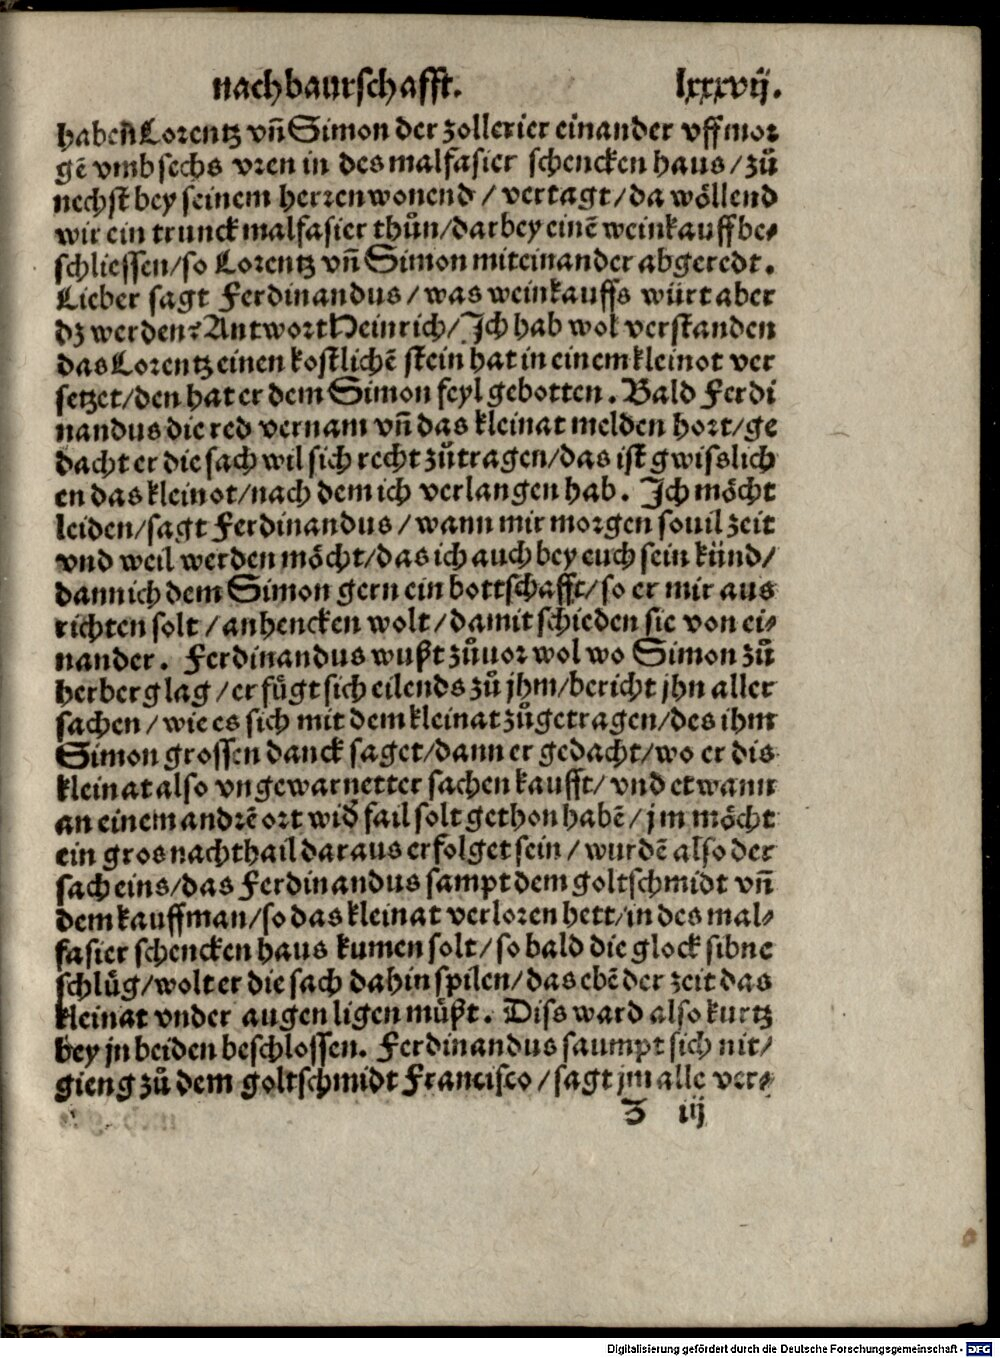 nachbaurschafft. lxxxvij.
haben Lorentz vñ Simon der zollerier einander vff mor
gẽ vmb sechs vren in des malfasier schencken haus / zů
nechst bey seinem herren wonend / vertagt / da wöllend
wir ein trunck malfasier thůn / darbey einẽ weinkauff be⸗
schliessen / so Lorentz vñ Simon miteinander abgeredt.
Lieber sagt Ferdinandus / was weinkauffs würt aber
dz werden? Antwort Heinrich / Ich hab wol verstanden
das Lorentz einen kostlichẽ stein hat in einem kleinot ver
setzet / den hat er dem Simon feyl gebotten. Bald Ferdi
nandus die red vernam vñ das kleinat melden hort / ge
dacht er die sach wil sich recht zůtragen / das ist gwisslich
en das kleinot / nach dem ich verlangen hab. Ich möcht
leiden / sagt Ferdinandus / wann mir morgen souil zeit
vnd weil werden möcht / das ich auch bey euch sein künd /
dann ich dem Simon gern ein bottschafft / so er mir aus
richten solt / anhencken wolt / damit schieden sie von ei⸗
nander. Ferdinandus wußt zůuor wol wo Simon zů
herberg lag / er fůgt sich eilends zů jhm / bericht jhn aller
sachen / wie es sich mit dem kleinat zůgetragen / des ihm
Simon grossen danck saget / dann er gedacht / wo er dis
kleinat also vngewarnetter sachen kaufft / vnd etwann
an einem andrẽ ort wid̕ fail solt gethon habẽ / jm möcht
ein gros nachthail daraus erfolget sein / wurdẽ also der
sach eins / das Ferdinandus sampt dem goltschmidt vñ
dem kauffman / so das kleinat verloren hett / in des mal⸗
fasier schencken haus kumen solt / so bald die glock sibne
schlůg / wolt er die sach dahin spilen / das ebẽ der zeit das
kleinat vnder augen ligen můßt. Diss ward also kurtz
bey jn beiden beschlossen. Ferdinandus saumpt sich nit /
gieng zů dem goltschmidt Francisco / sagt jm alle ver⸗
Z iij
Digitalisierung gefördert durch die Deutsche Forschungsgemeinschaft - DFG